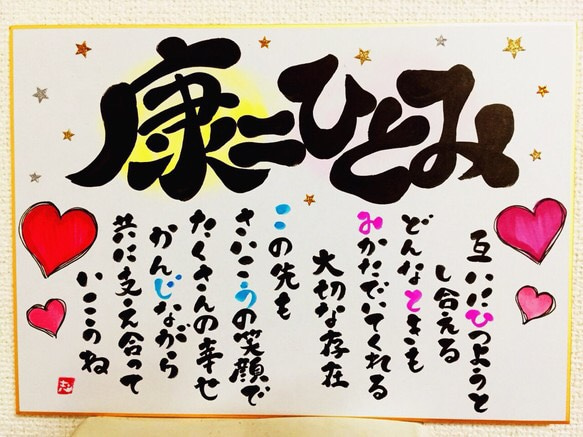 康二ひとみ
互いにひつようと
し合える
どんなときも
みかたでいてくれる
大切な存在
この先も
さいこうの笑顔で
たくさんの幸せ
かんじながら
共に支え合って
いこうね